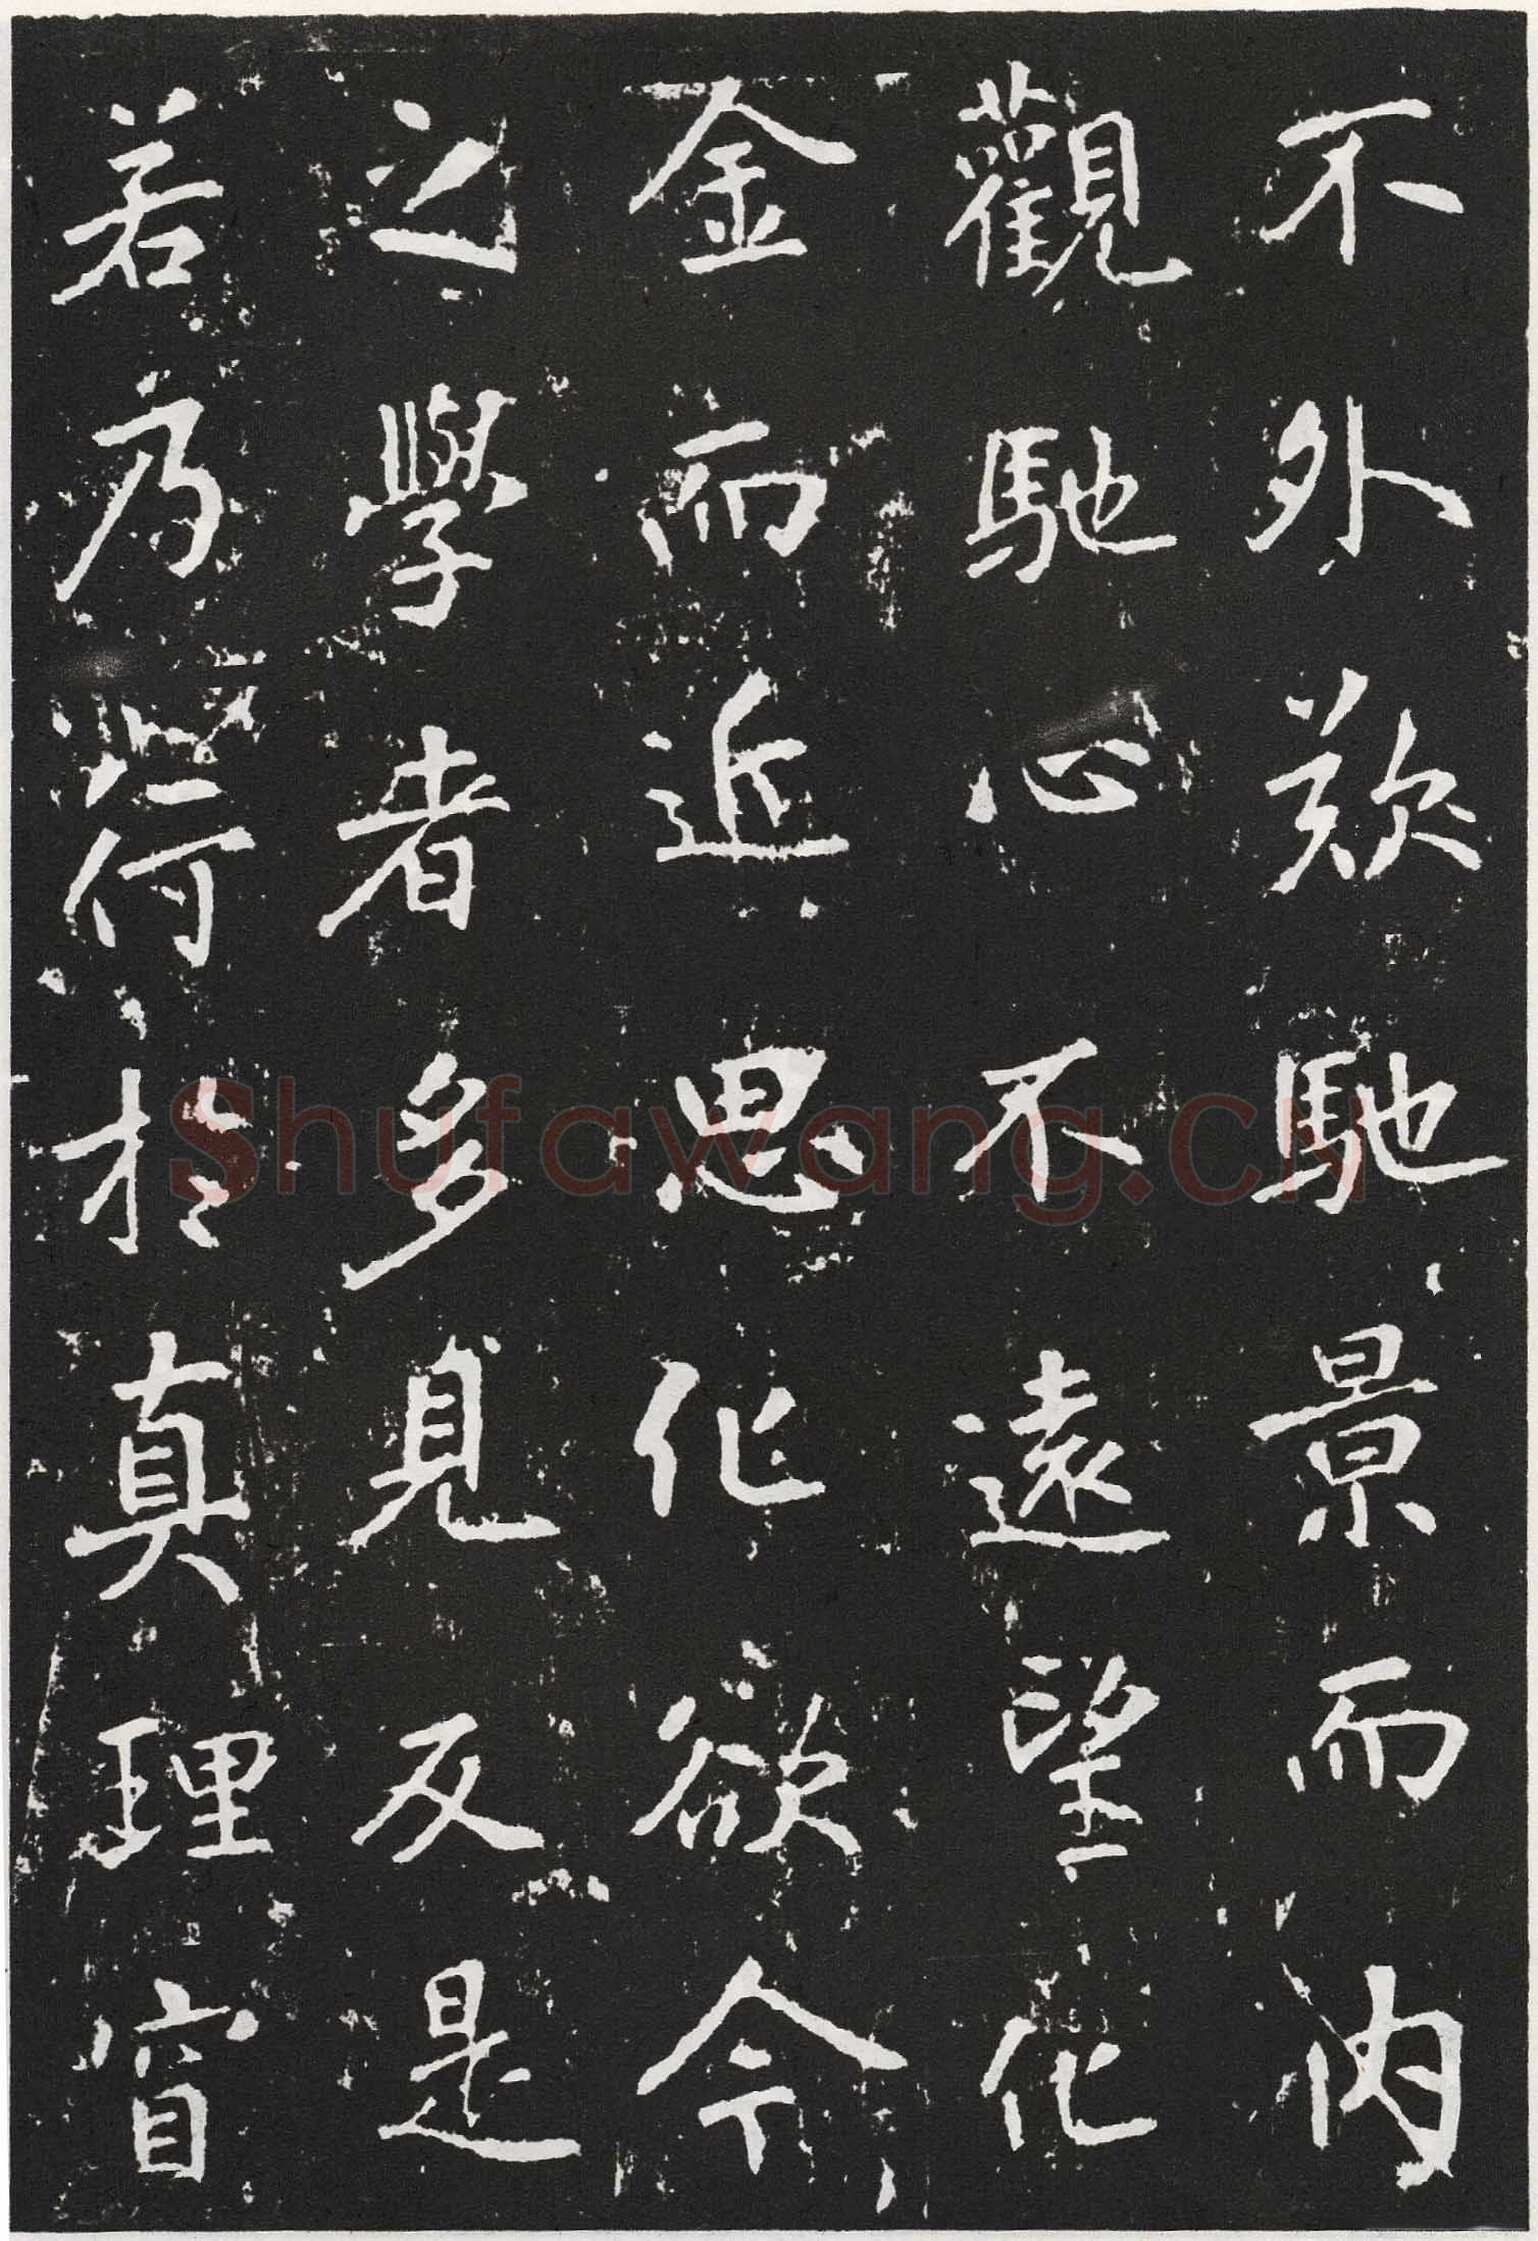 不外欵馳景而內
觀馳心不遠望化
金而近思化欲今
之學者多見反是
若乃苛於真理窅
Shufawang.CN